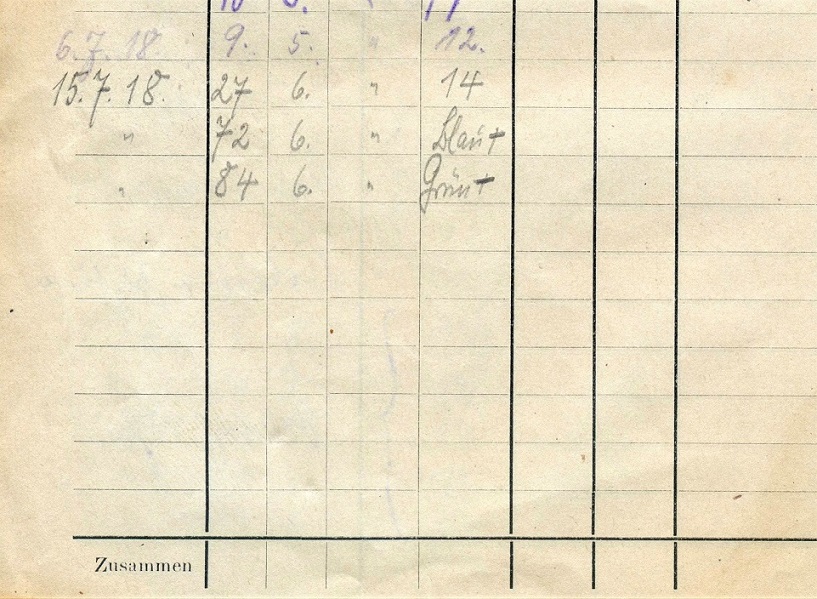 6.7.18 9. 5. " 12.
15.7.18. 27 6. " 14
" 72 6. " Blau +
" 84 6. " Grün +
Zusammen